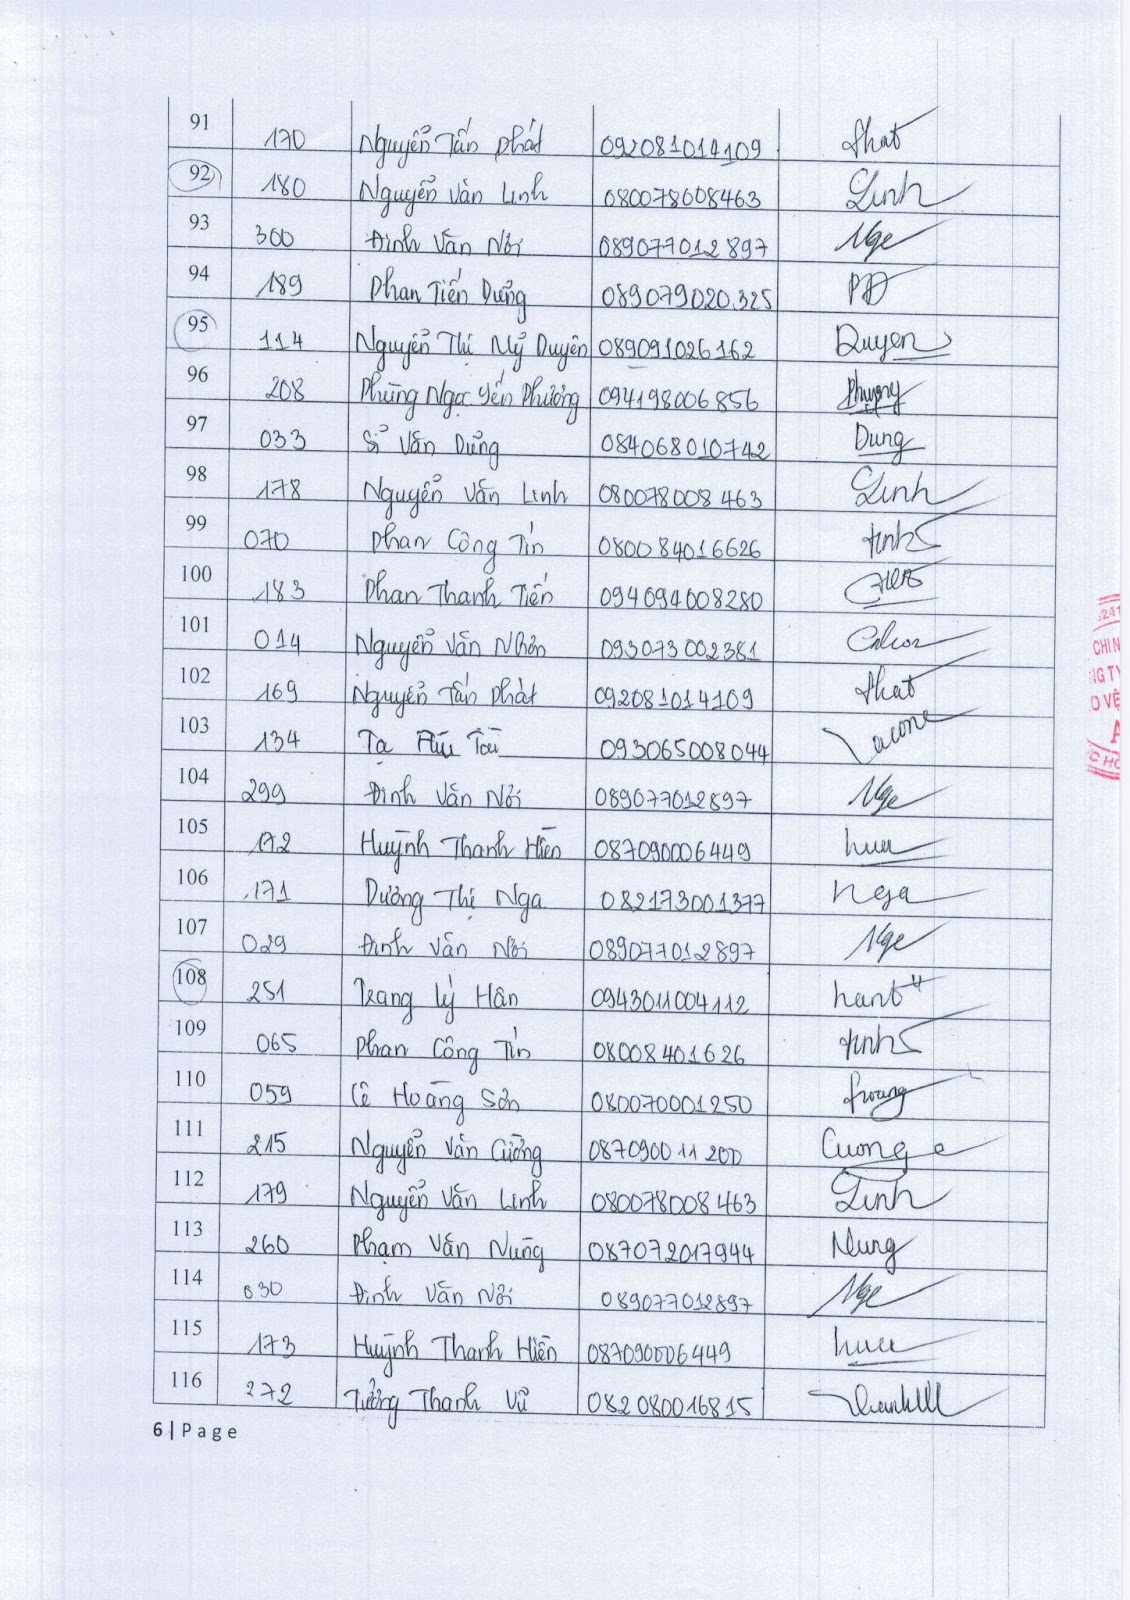 91 170 Nguyễn Tấn Phát 092081014109 Phat
92 180 Nguyễn Văn Linh 080078608463 Linh
93 300 Đinh Văn Nơi 089077012897 Nge
94 189 Phan Tiến Dũng 089079020325 PD
95 114 Nguyễn Thị Mỹ Duyên 089091026162 Duyen
96 208 Phùng Ngọc Yến Phương 094198006856 Phượng
97 033 Sĩ Văn Dũng 084068010742 Dung
98 178 Nguyễn Văn Linh 080078008463 Linh
99 070 Phan Công Tín 080084016626 tinh
100 183 Phan Thanh Tiến 094094008280
101 014 Nguyễn Văn Nhơn 093073002381
102 169 Nguyễn Tấn Phát 092081014109 Phat
103 134 Tạ Tài 093065008044
104 299 Đinh Văn Nơi 089077012897 Nge
105 172 Huỳnh Thanh Hiền 087090006449
106 171 Dương Thị Nga 082173001377 nga
107 029 Đinh Văn Nơi 089077012897 Nge
108 251 Trang Lý Hân 0943011004112
109 065 Phan Công Tín 08008401626 tinh
110 059 Lê Hoàng Sơn 080070001250 hoang
111 215 Nguyễn Văn Cường 087090011200 Cuong
112 179 Nguyễn Văn Linh 080078008463 Linh
113 260 Phạm Văn Nung 087072017944 Nung
114 030 Đinh Văn Nơi 089077012897 Nge
115 173 Huỳnh Thanh Hiền 087090006449
116 272 Tưởng Thanh Vũ 082080016815
6 | Page